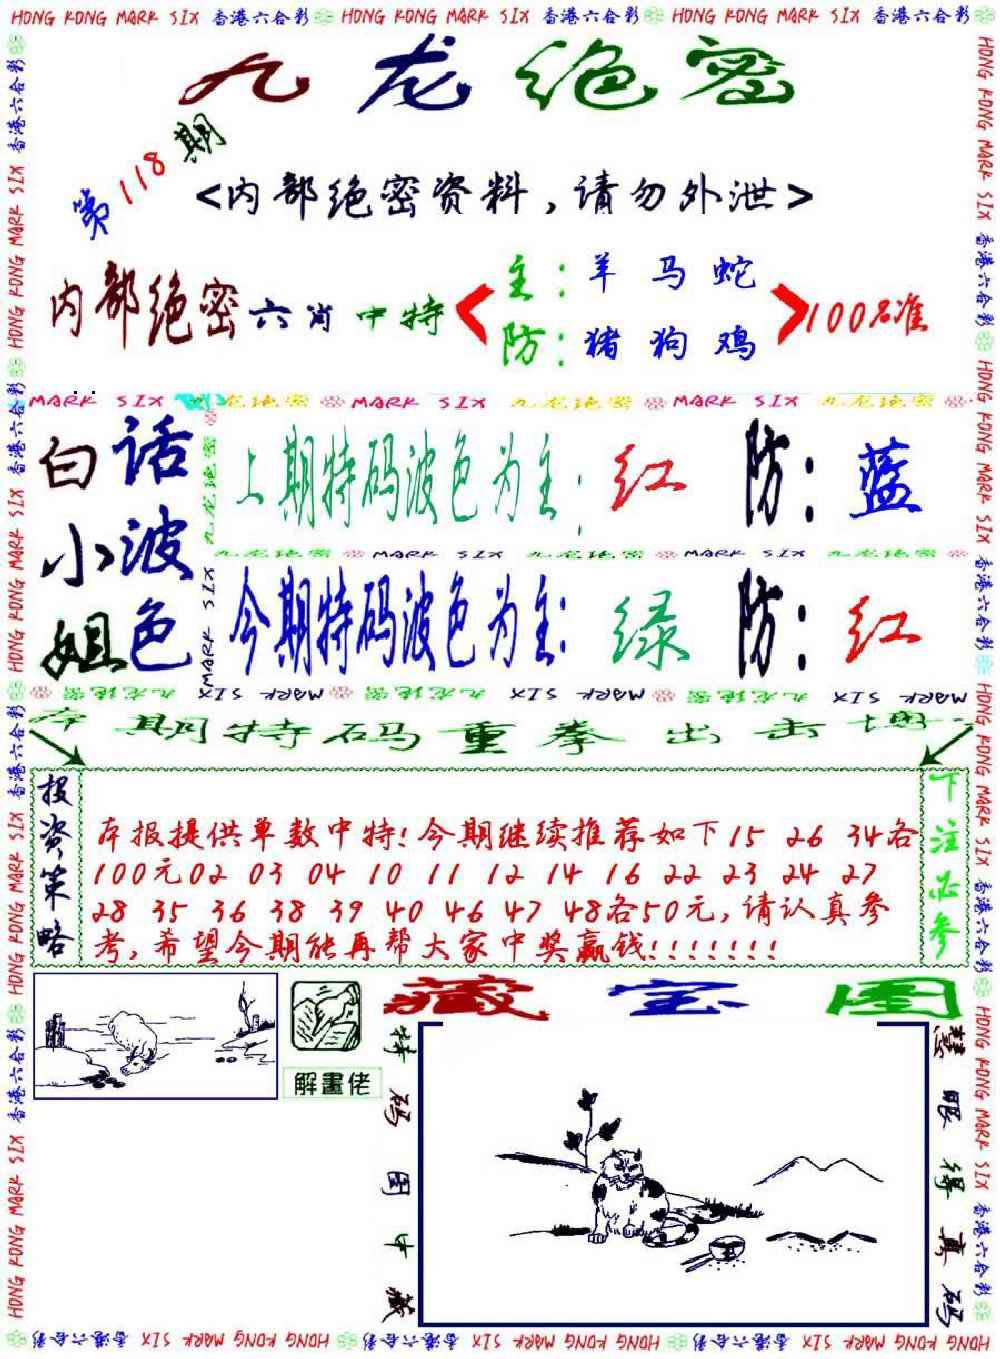 HONG KONG MARK SIX 香港六合彩 HONG KONG MARK SIX 香港六合彩 HONG KONG MARK SIX 香港六合彩
九龙绝密
第118期
<内部绝密资料,请勿外泄>
内部绝密六肖中特
主:羊 马 蛇
防:猪 狗 鸡
100%准
MARK SIX 九龙绝密 MARK SIX 九龙绝密 MARK SIX 九龙绝密
白话小波姐色
上期特码波色为主:红 防:蓝
九龙绝密 MARK SIX 九龙绝密 MARK SIX 九龙绝密
今期特码波色为主:绿 防:红
MARK SIX 九龙绝密 MARK SIX 九龙绝密 MARK SIX 九龙绝密
本期特码重拳出击
投资策略
本报提供单数中特!今期继续推荐如下15 26 34各
100元02 03 04 10 11 12 14 16 22 23 24 27
28 35 36 38 39 40 46 47 48各50元,请认真参
考,希望今期能再帮大家中奖赢钱!!!!!!!
下注必参
解畫佬
藏宝图
特码图中藏
慧眼得真码
HONG KONG MARK SIX 香港六合彩 HONG KONG MARK SIX 香港六合彩 HONG KONG MARK SIX 香港六合彩